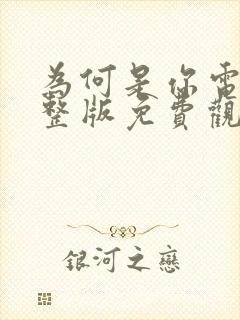 為何是你電
整版免費觀
銀河之戀